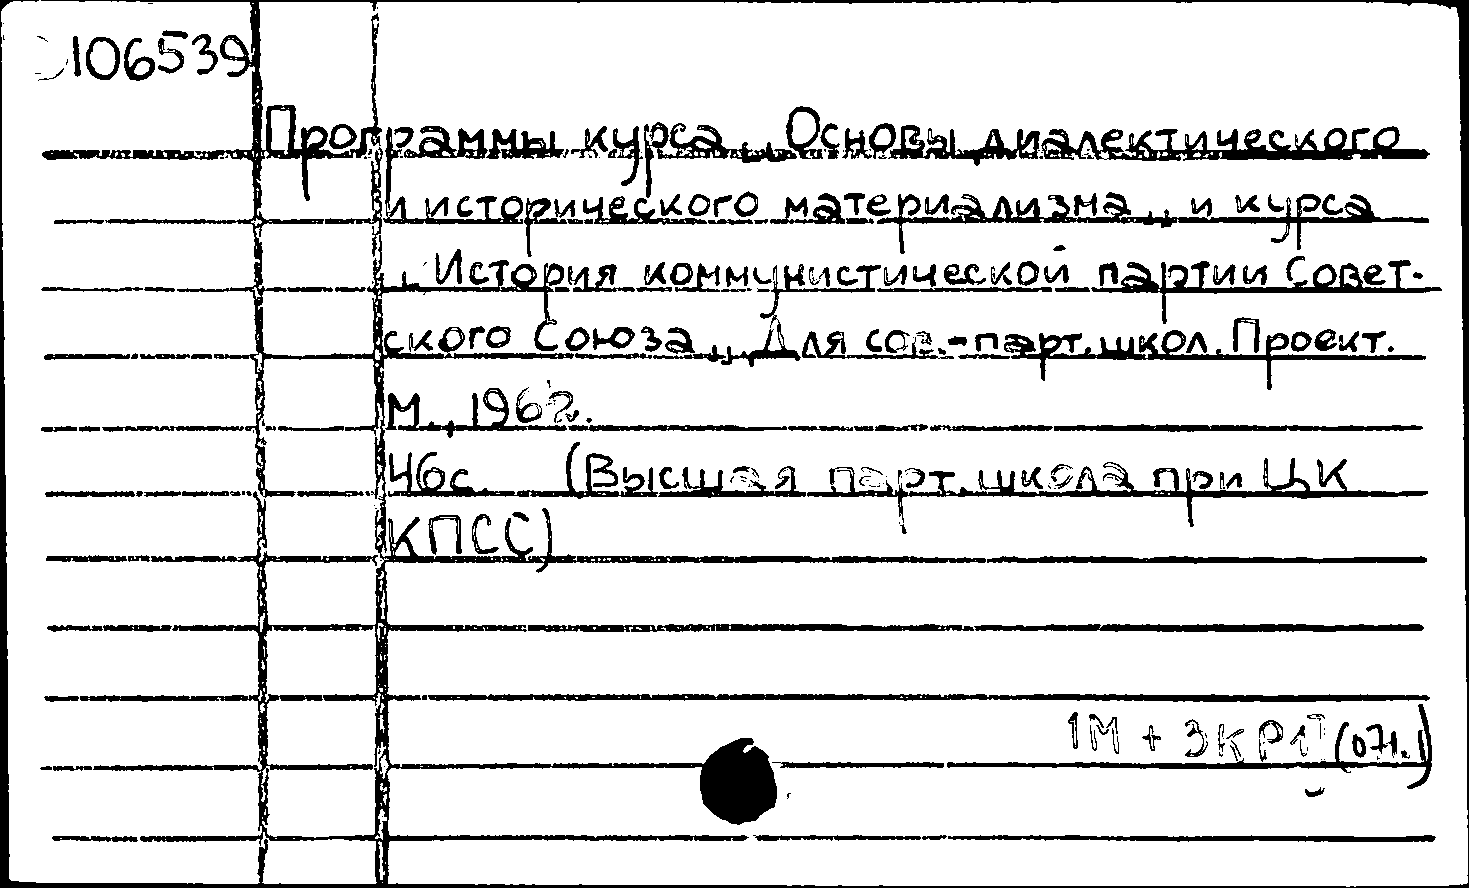 106539
Программы курса „Основы диалектического
и исторического материализма„ и курса
„История коммунистической партии Совет-
ского Союза„ Для сов.-парт. школ. Проект.
М., 1962.
46с. (Высшая парт. школа при ЦК
КПСС)
1М + 3КР1 (071.1)